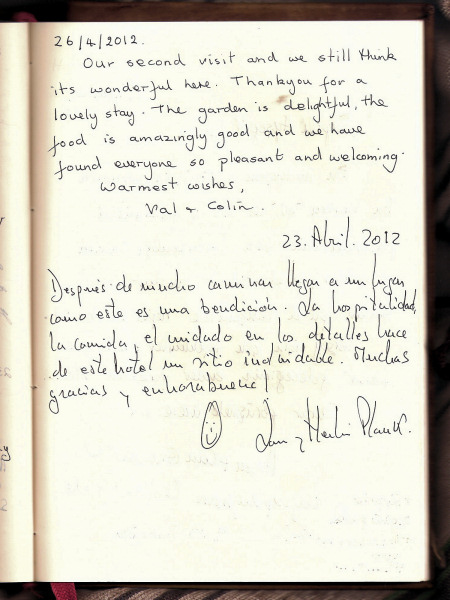 26/4/2012.
Our second visit and we still think
its wonderful here. Thankyou for a
lovely stay. The garden is delightful, the
food is amazingly good and we have
found everyone so pleasant and welcoming.
Warmest wishes,
Val + Colin.
23. Abril. 2012
Después de mucho caminar llegar a un lugar
como este es una bendición. La hospitalidad,
la comida, el cuidado en los detalles hace
de este hotel un sitio inolvidable. Muchas
gracias y enhorabuena!